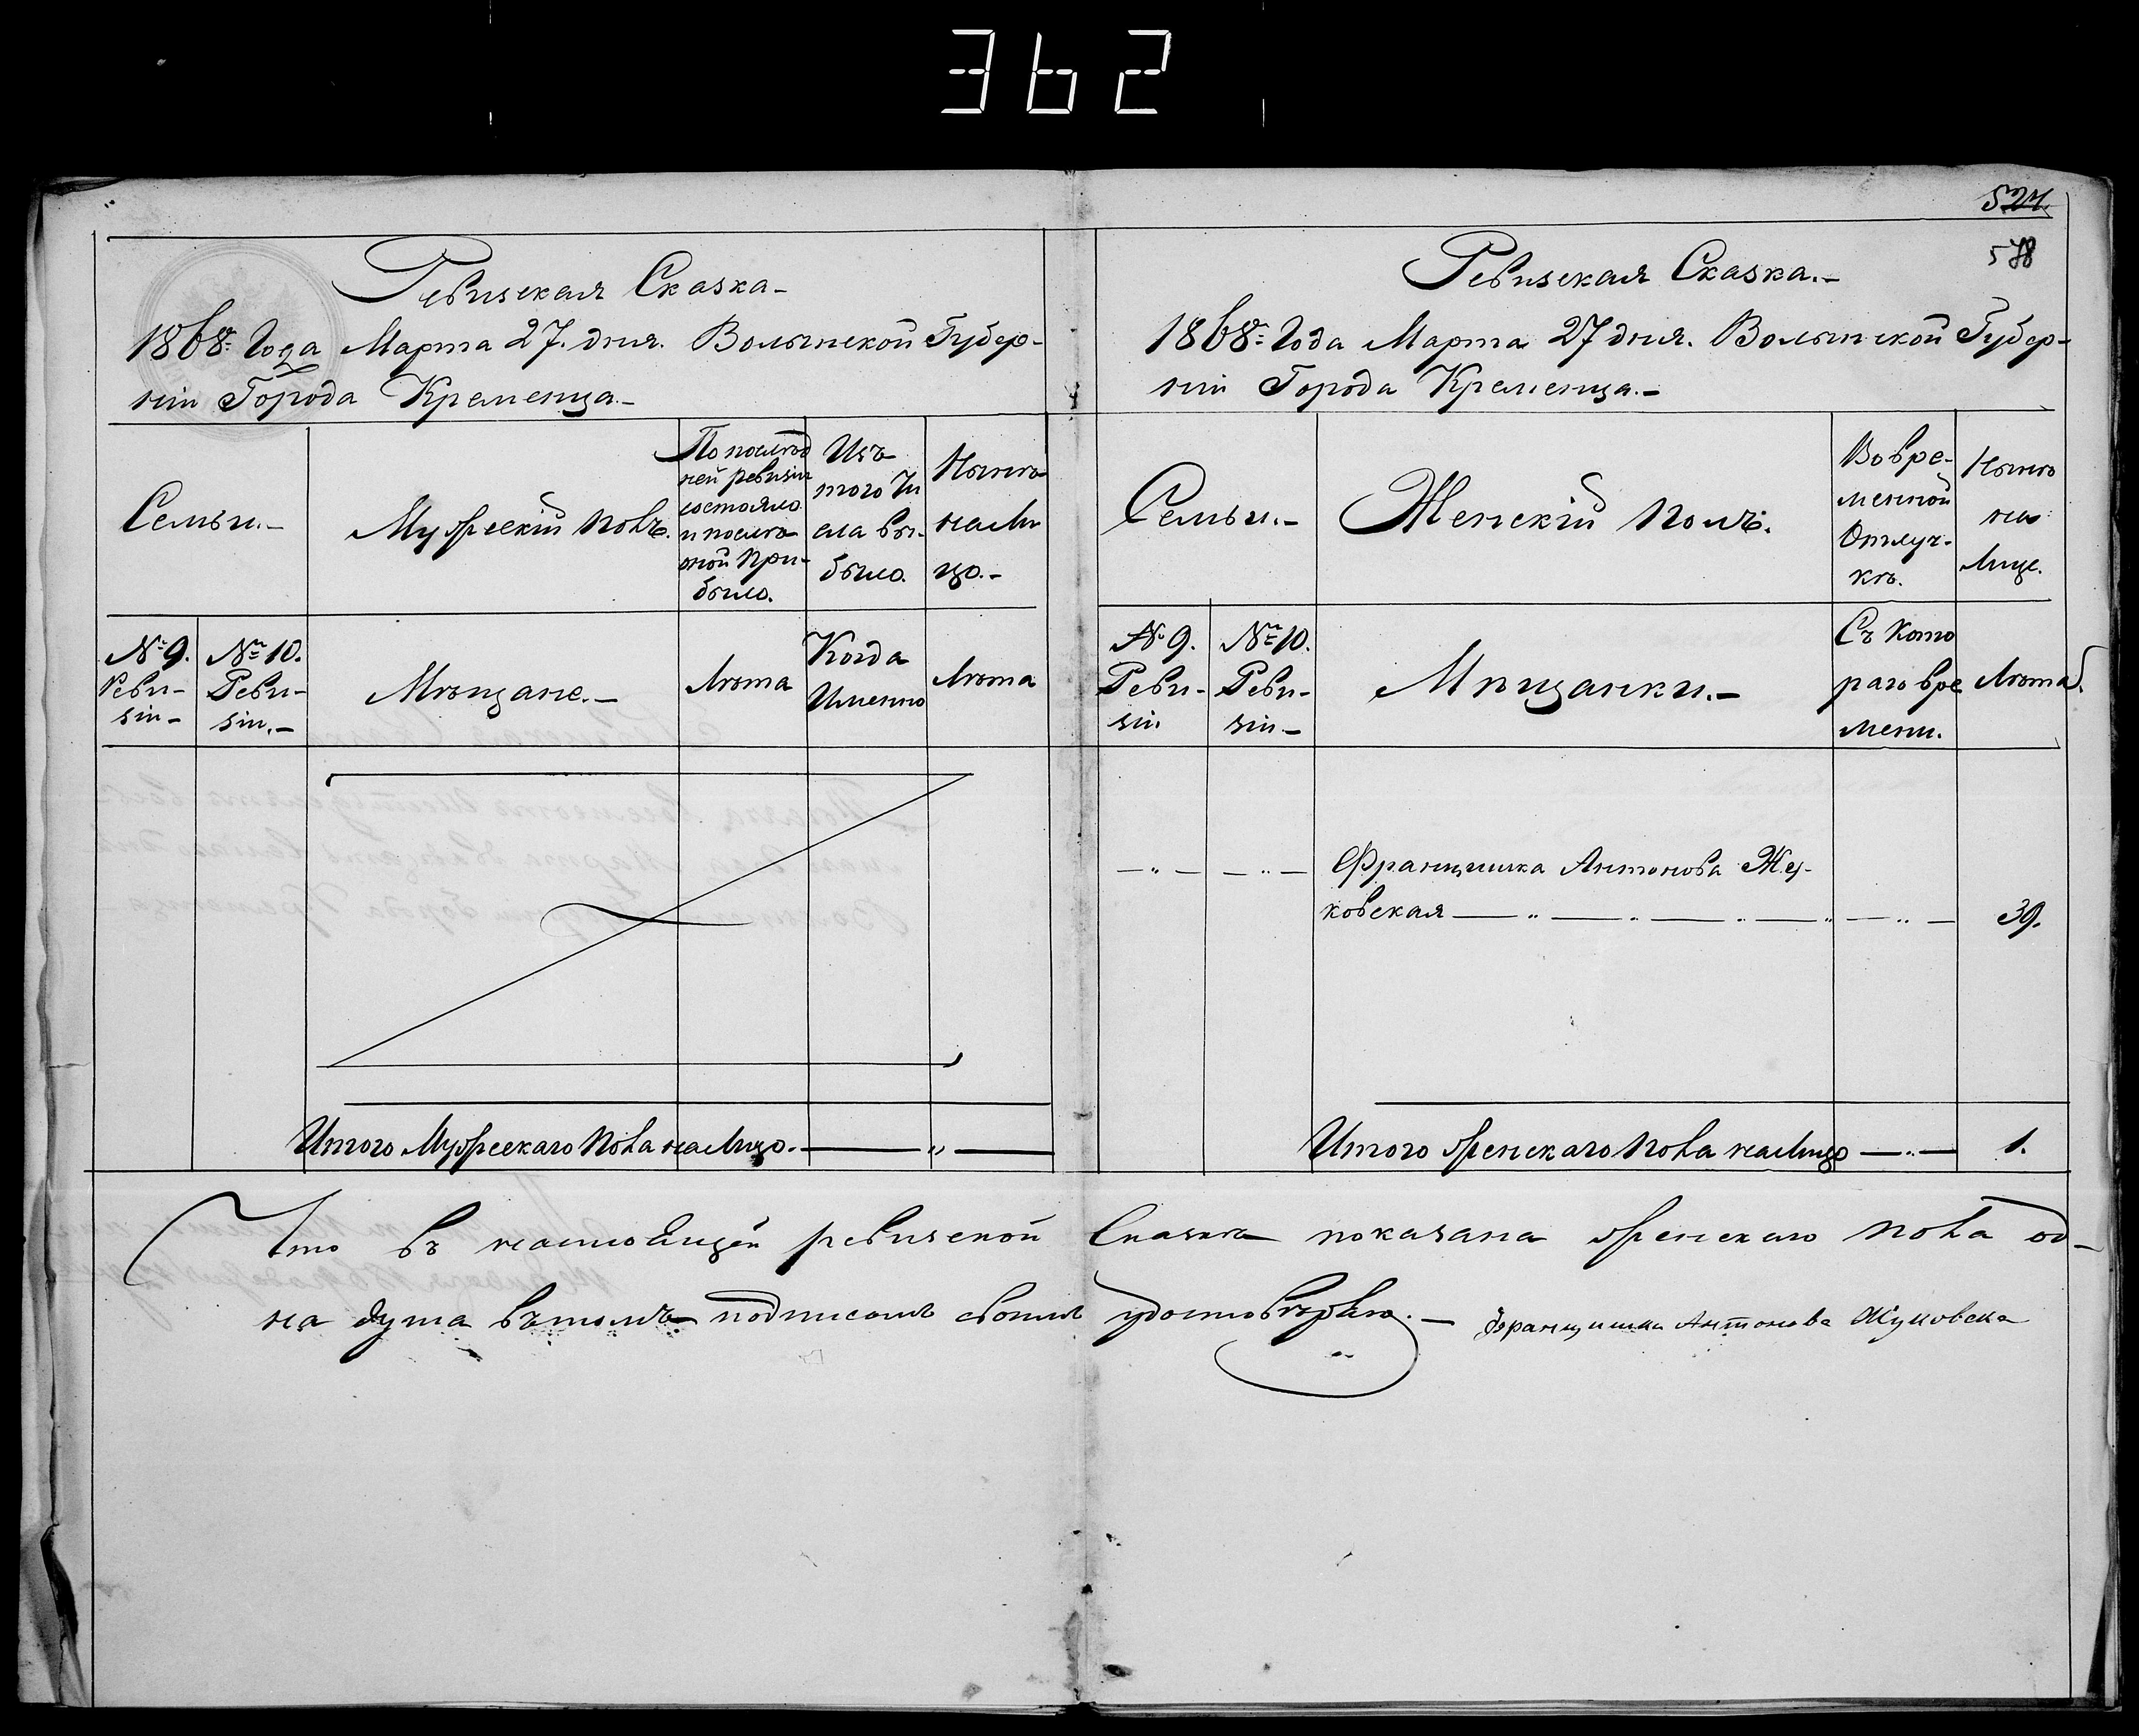 362
524
578
Ревизская Сказка.-
1868 Года Марта 27. дня. Волынской Губер-
ніи Города Кременца.-
Семьи.-
Мужескій полъ.
По послѣд
ней ревизіи
состояло
и послѣ
оной при-
было.
Изъ
того чи
сла вы-
было.
Нынѣ
нали
цо.-
№ 9.
Реви-
зіи-
№ 10.
Реви-
зіи.-
Мѣщане.-
Лѣта
Когда
Именно
Лѣта
Итого Мужескаго пола налицо.-
Ревизская Сказка.-
1868 Года Марта 27 дня. Волынской Губер-
ніи Города Кременца.-
Семьи.-
Женскій полъ.
Во вре-
менной
Отлуч-
кѣ.
Нынѣ
на
Лице.
№ 9.
Реви-
зіи.
№ 10.
Реви-
зіи-
Мѣщанки.-
Съ кото
раго вре
мени.
Лѣта.
Францишка Антонова Жу-
ковская 39.
Итого женскаго пола налицо 1.
Что въ настоящей ревизской Сказкѣ показана женскаго пола од-
на душа въ томъ подписомъ своимъ удостовѣряю.- Францишка Антонова Жуковска